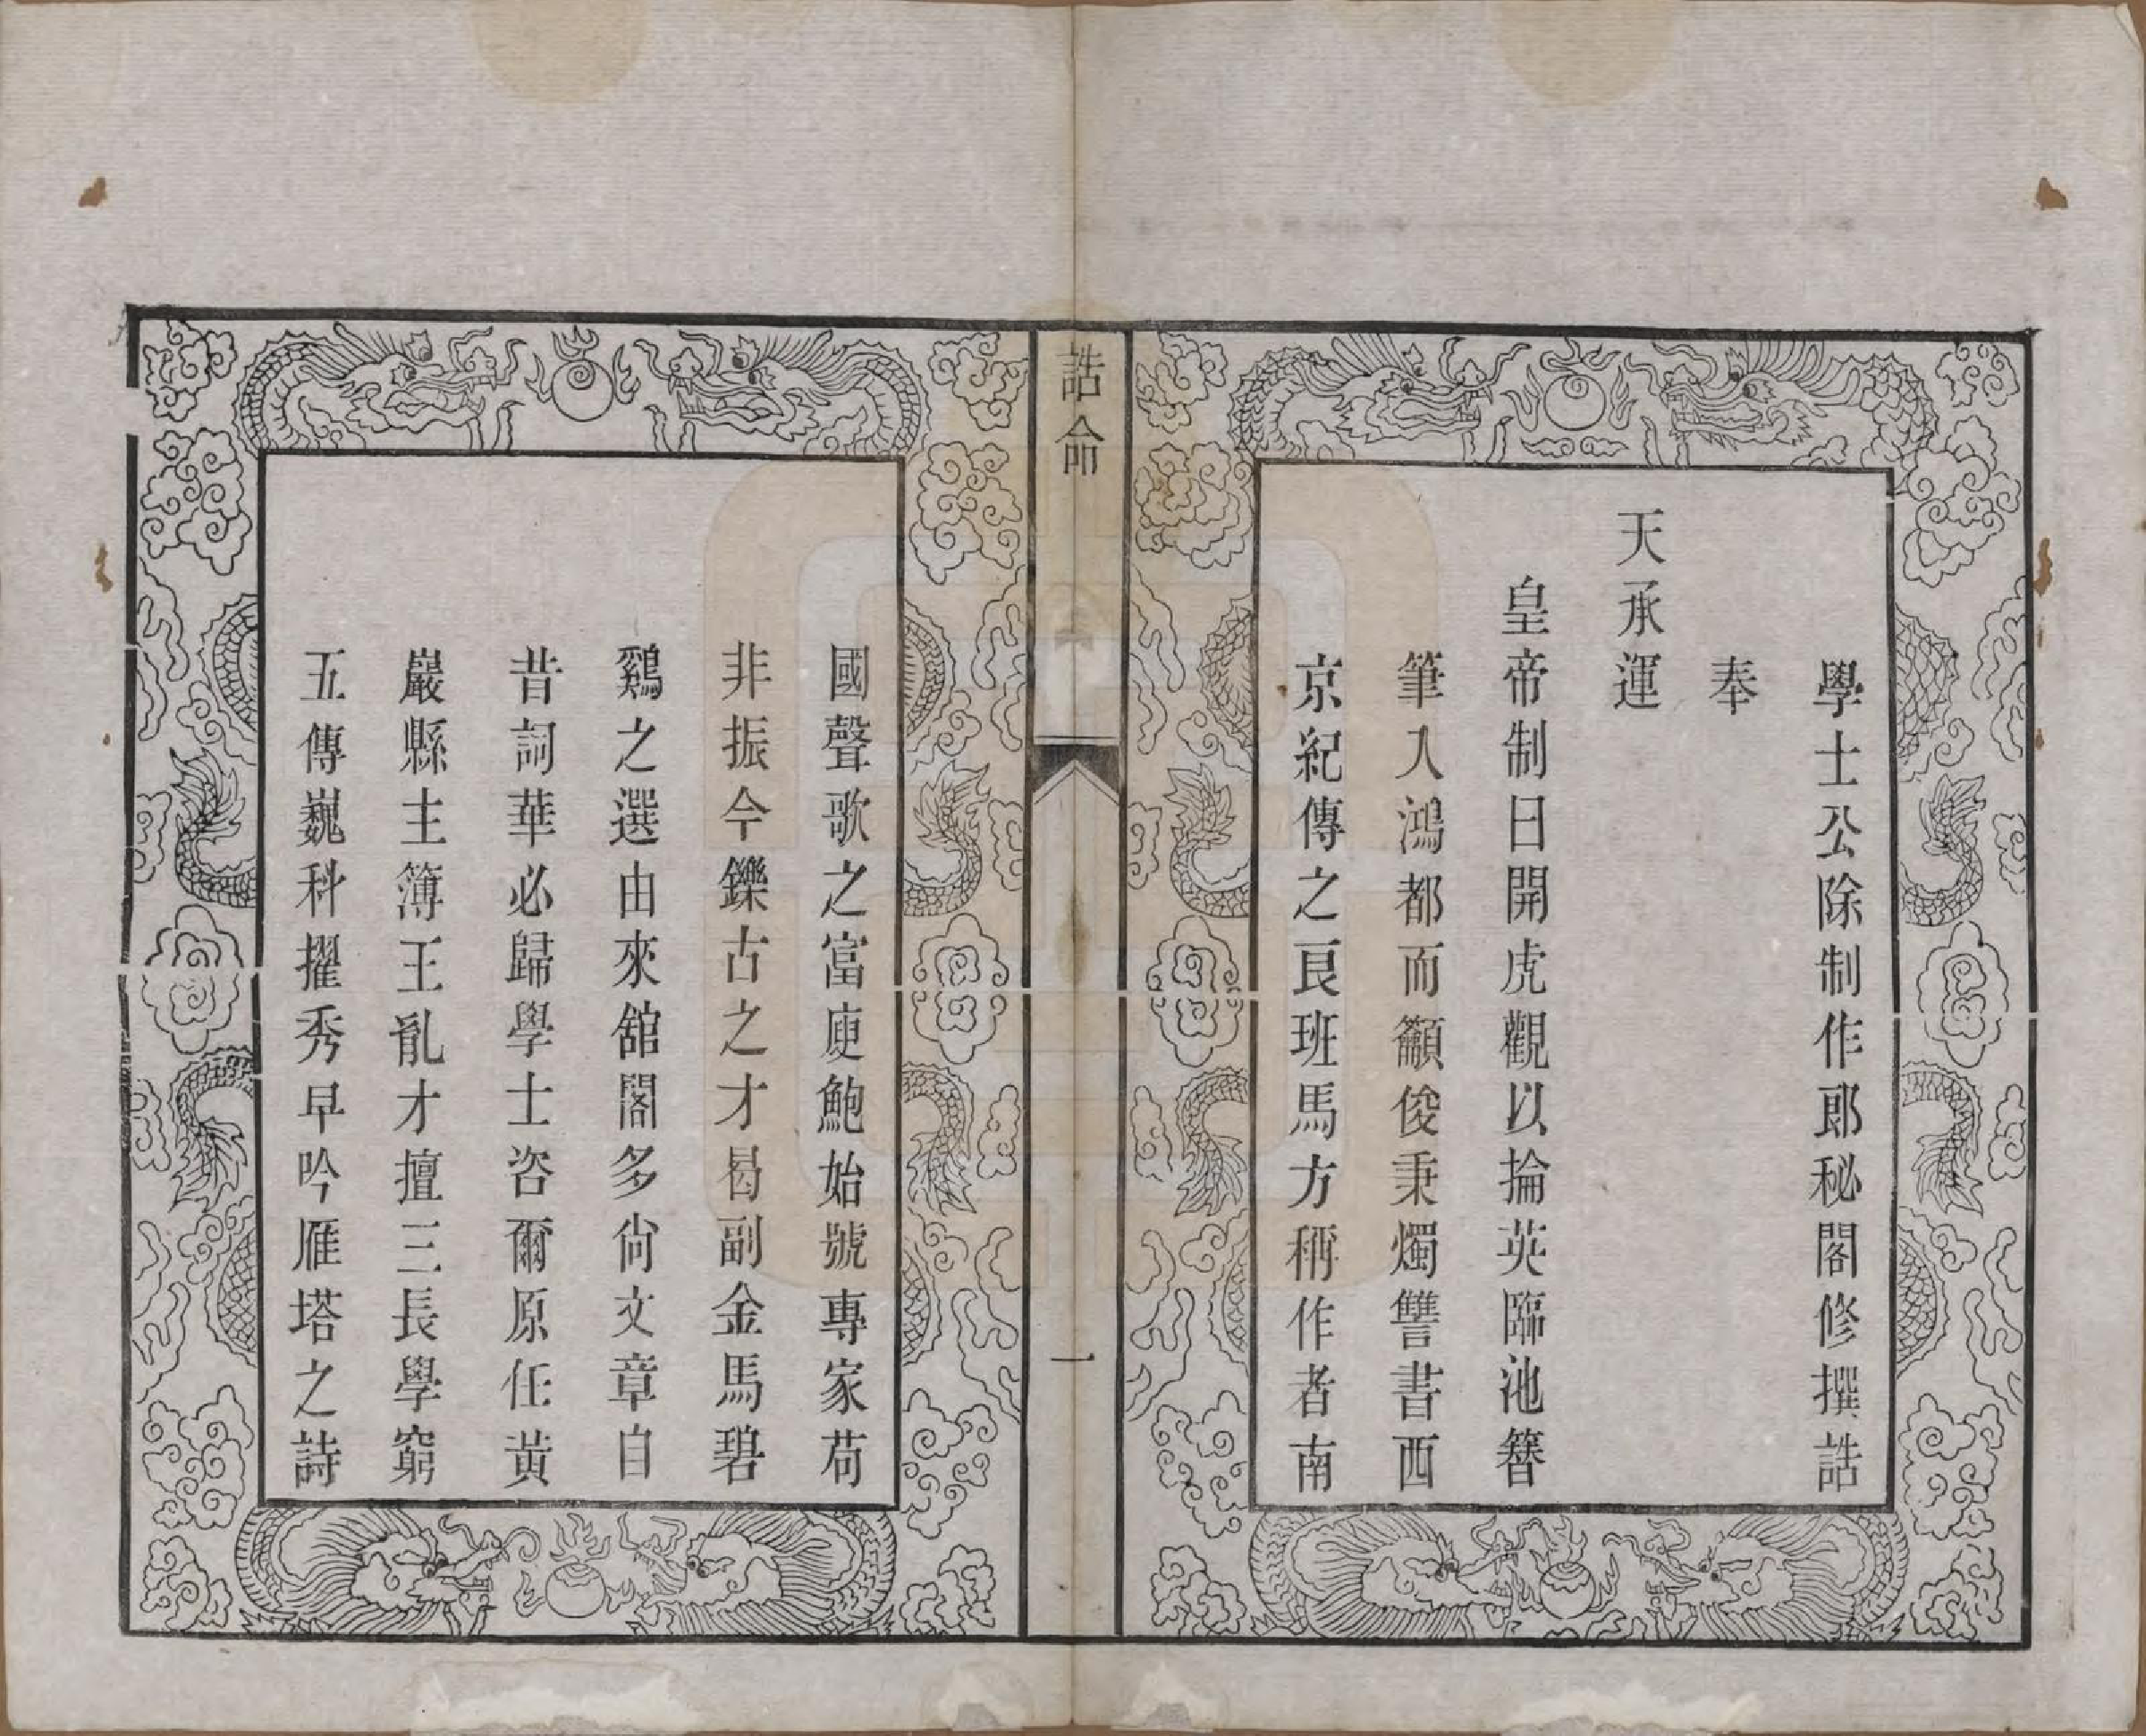 學士公除制作郎秘閣修撰誥
奉
天承運
皇帝制曰開虎觀以掄英臨池簪
筆入鴻都而籲俊秉燭讐書西
京紀傳之良班馬方稱作者南
誥命
一
國聲歌之富庾鮑始號專家苟
非振今鑠古之才曷副金馬碧
鷄之選由來舘閣多尙文章自
昔詞華必歸學士咨爾原任黃
巖縣主簿王亂才擅三長學窮
五傳巍科擢秀早吟雁塔之詩